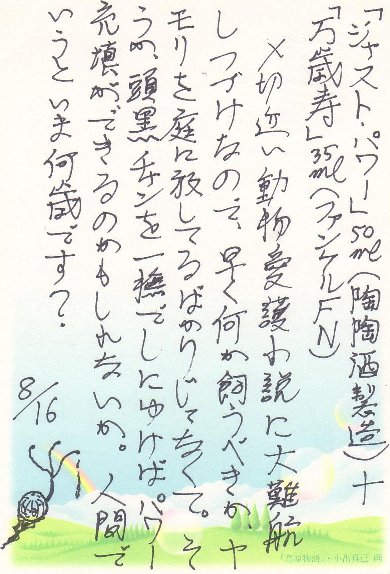 「ジャスト・パワー」50ml（陶陶酒製造）＋
「万歳寿」35ml（ファンケルFN）
〆切近い動物愛護小説に大難航
しつづけなので、早く何か飼うべきか、ヤ
モリを庭に放してるばかりじゃなくて。そ
うか、頭黒チャンを一撫でしにゆけば。パワー
充填ができるのかもしれないか。人間で
いうといま何歳です？
8/16
『高原物語』・小出真己 画